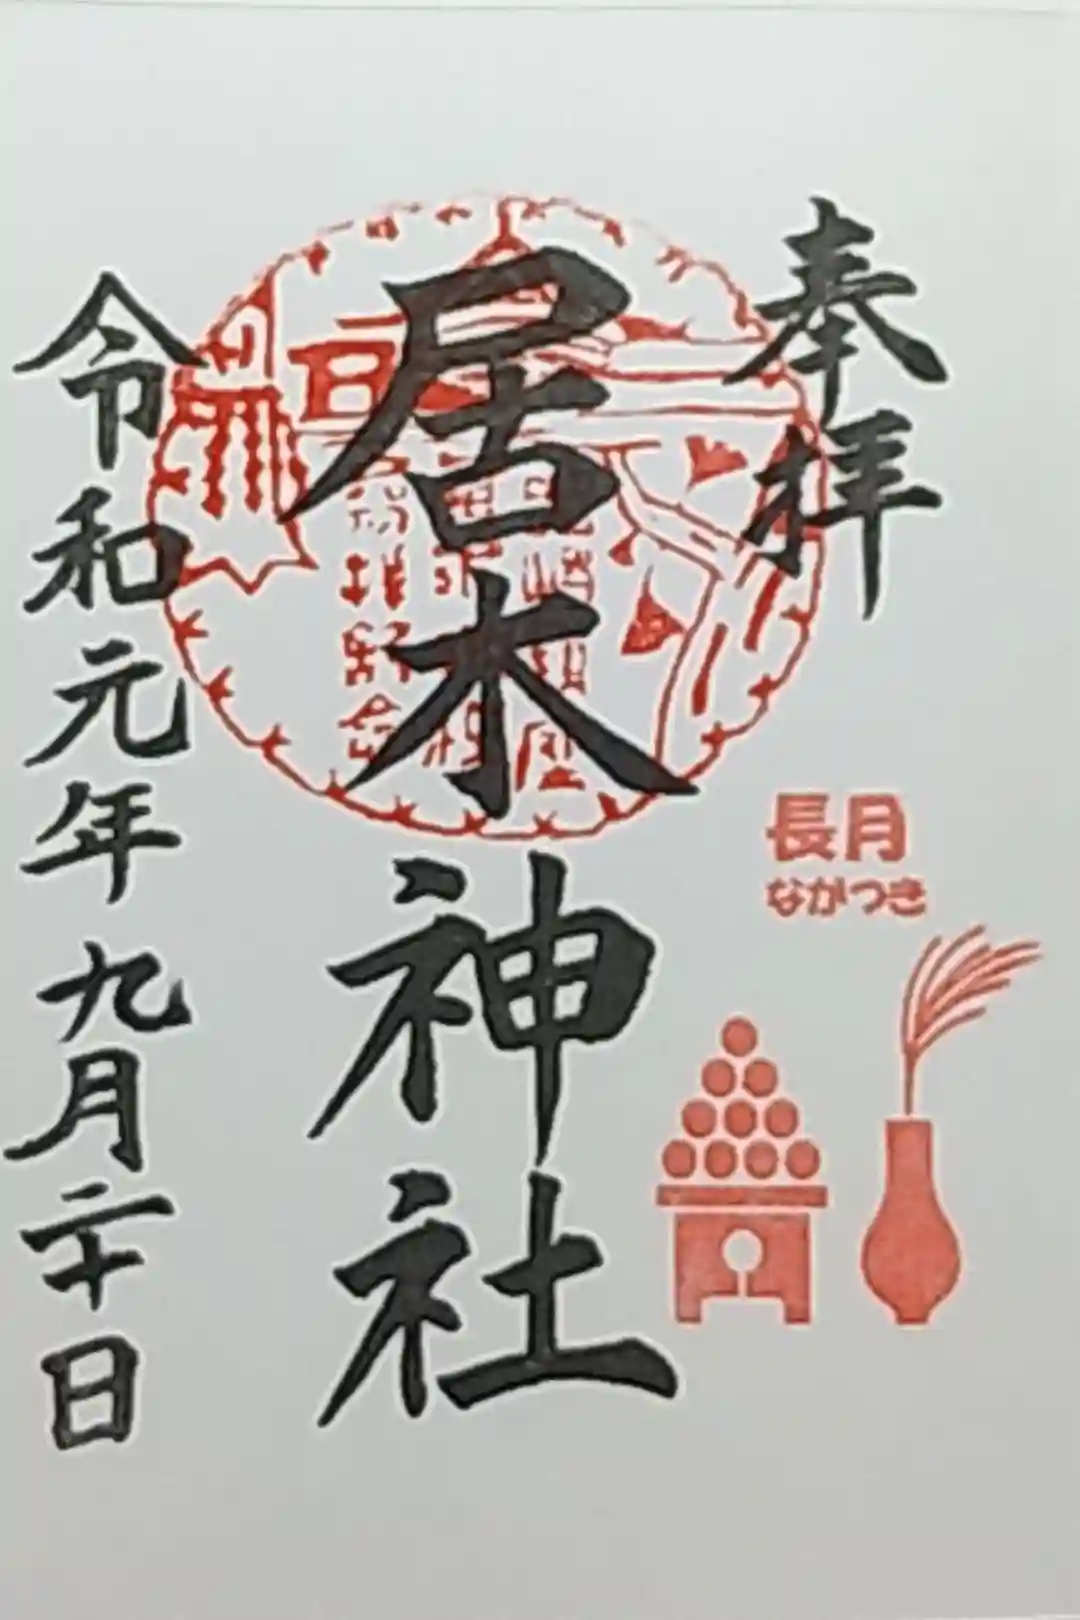 奉拝
居木神社
令和元年九月二十日
長月
ながつき